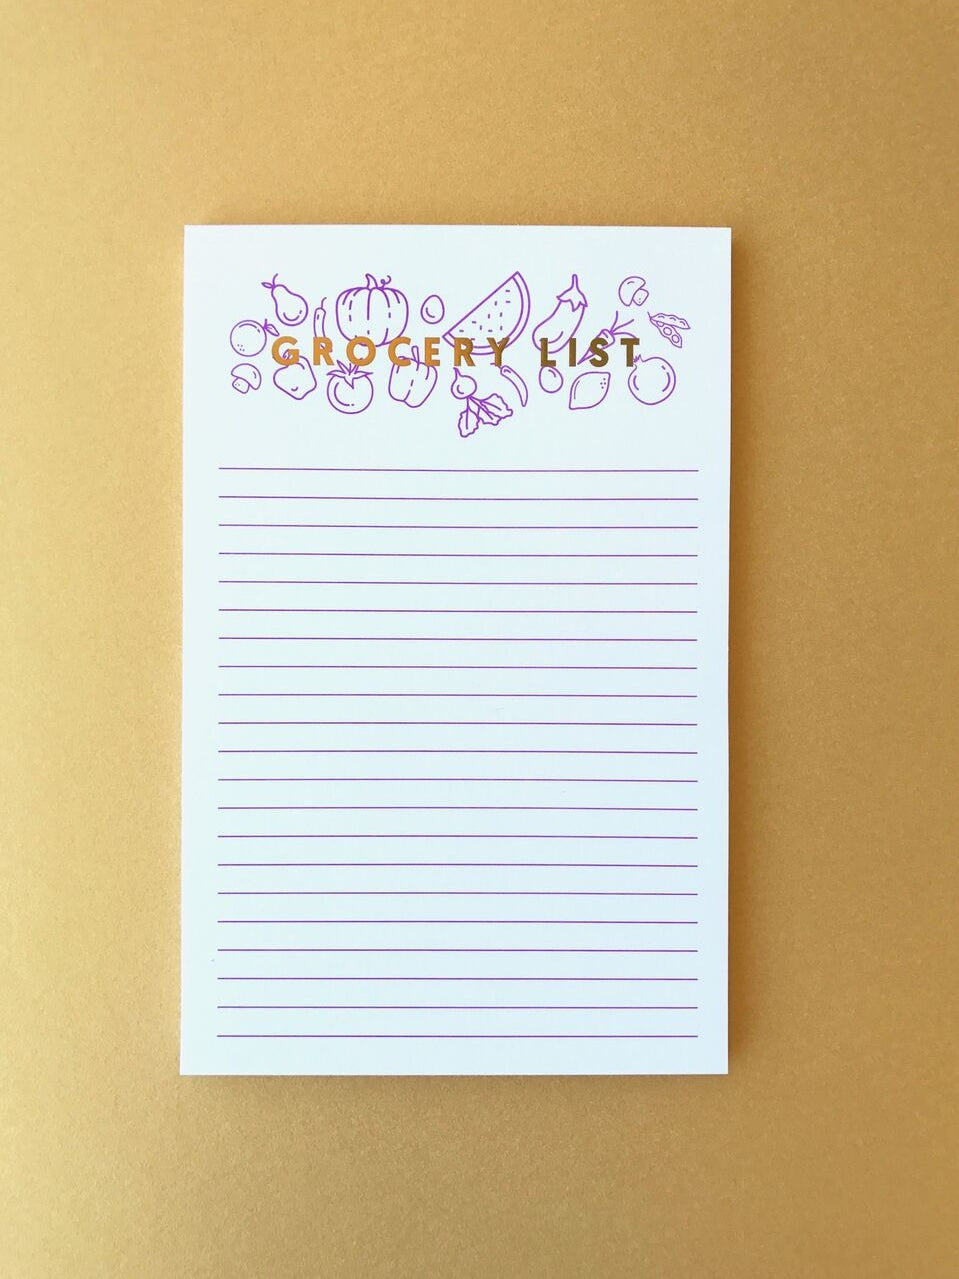 GROCERY LIST